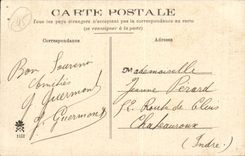 CARTE POSTALE
Tous les pays étrangers n'acceptent pas la correspondance au recto
(se renseigner à la poste)
Correspondance
Adresse
Bon Souvenir
Amitiés
J. Guermont
J. Guermont
Mademoiselle
Jeanne Perard
52 Route de Blois
Chateauroux
(Indre)